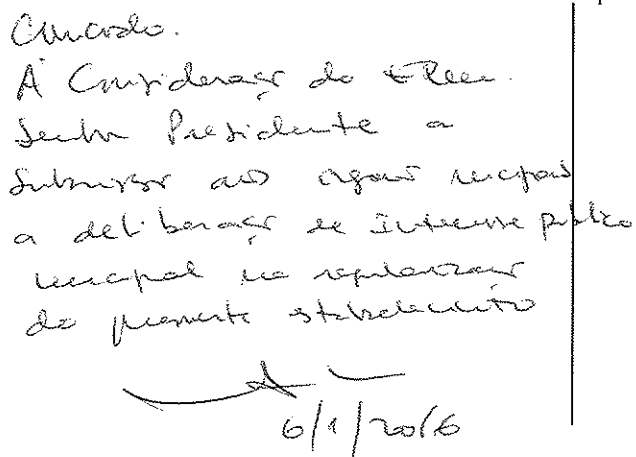 Concordo.
À Consideração do Exmo.
Senhor Presidente a
submissão aos órgãos municipais
a deliberação de Interesse público
municipal na regularização
do presente estabelecimento
6/1/2016